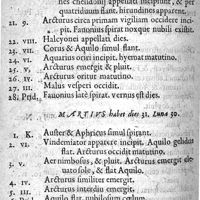 nes chelidonij appellati incipiunt, & per
quatriduum flant, hirundines apparent.
21. 9. Arcturus circa primam vigiliam occidere inci-
pit. Fauonius spirat noxque nubili exisit.
22. VIII. Halcyonei appellati dies.
23. VII. Coruus & Aquilo simul flant.
24. VI. Aquarius oritur matutino.
25. V. Arcturus emergit & pluit.
26. IV. Arcturus oritur matutino.
27. III. Malus vesperi occidit.
28. Prid. Fauonius isse spirat, vernus est dies.
MARTIVS habet dies 31. Luna 30.
1. K. Auster & Aphricus simul spirant.
2. VI. Vindemiator apparere incipit. Aquilo gelidus
flat. Arcturus occidit matutino.
3. V. Aer nimbosus, & pluit. Arcturus emergit
& flat Aquilo.
4. IV. Arcturus similiter emergit.
5. III. Arcturus interdiu emergit.
Prid. Aquilo flat